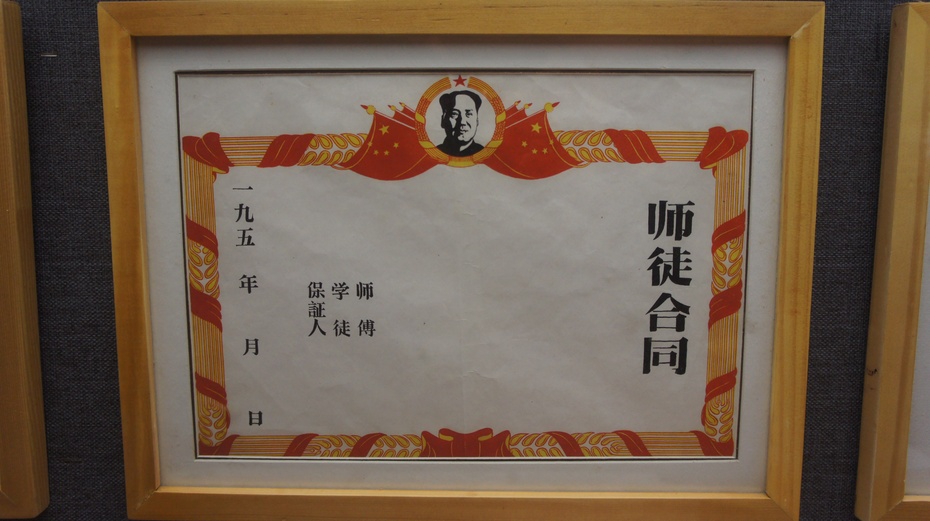 师徒合同
师傅
学徒
保証人
一九五 年 月 日